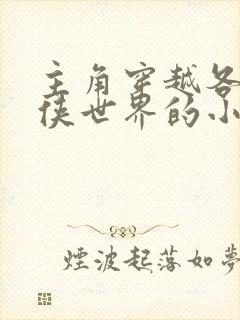 主角穿越各
侠世界的小
煙波起落如夢